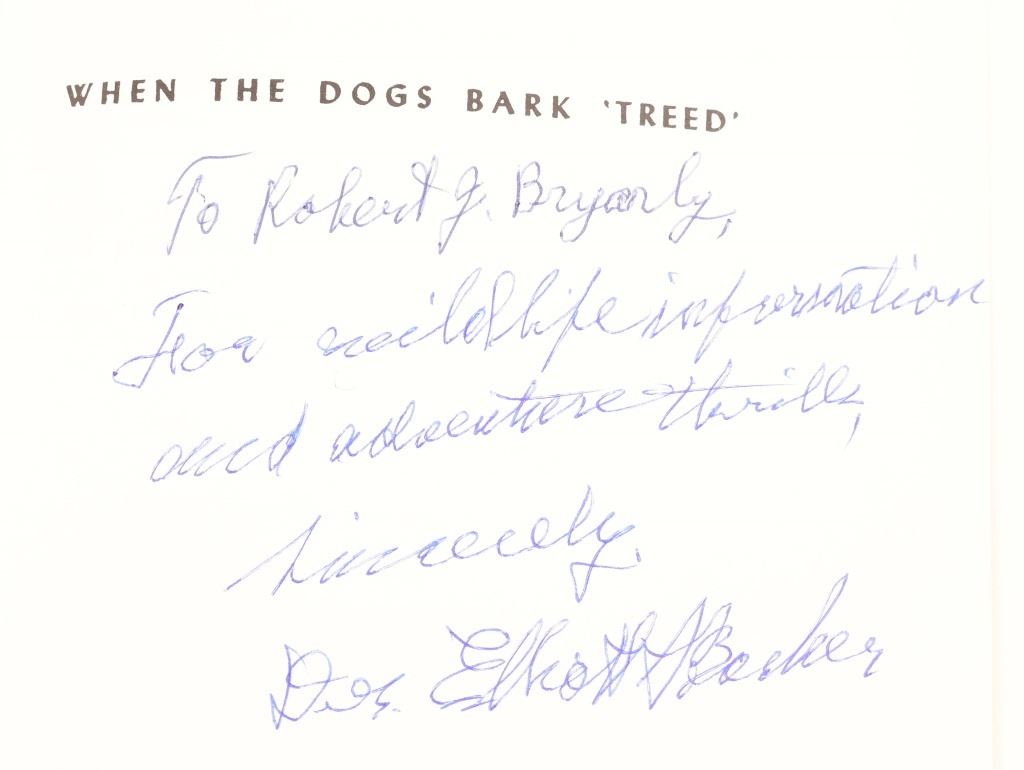 WHEN THE DOGS BARK 'TREED'
To Robert J.
For wildlife information
and adventure thrills,
Sincerely,
Elliott S Barker